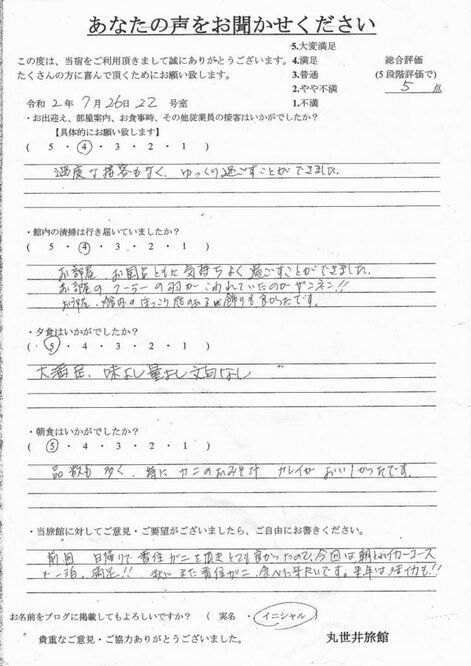 あなたの声をお聞かせください
この度は、当宿をご利用頂きまして誠にありがとうございます。
たくさんの方に喜んで頂くためにお願い致します。
5.大変満足
4.満足
3.普通
2.やや不満
1.不満
総合評価
(5段階評価で)
5 点
令和 2年 7月 26日 22 号室
・お出迎え、部屋案内、お食事時、その他従業員の接客はいかがでしたか?
【具体的にお願い致します】
( 5 ・ 4 ・ 3 ・ 2 ・ 1 )
過度な接客もなく、ゆっくり過ごすことができました。
・館内の清掃は行き届いていましたか?
( 5 ・ 4 ・ 3 ・ 2 ・ 1 )
お部屋、お風呂ともに気持ちよく過ごすことができました。
お部屋のクーラーの羽がこわれていたのがザンネン!!
お部屋、館内のほっこり感のある飾りも良かったです。
・夕食はいかがでしたか?
( 5 ・ 4 ・ 3 ・ 2 ・ 1 )
大満足、味よし量よし文句なし
・朝食はいかがでしたか?
( 5 ・ 4 ・ 3 ・ 2 ・ 1 )
品数も多く、特にカニのおみそ汁 カレイがおいしかったです。
・当旅館に対してご意見・ご要望がございましたら、ご自由にお書きください。
前回 日帰りで香住ガニを頂きとても良かったので、今回は朝とれイカコース
で一泊。満足!! 次にまた香住ガニ、食べに来たいです。来年は活イカも!!
お名前をブログに掲載してもよろしいですか? ( 実名 ・ イニシャル )
貴重なご意見・ご協力ありがとうございました。
丸世井旅館